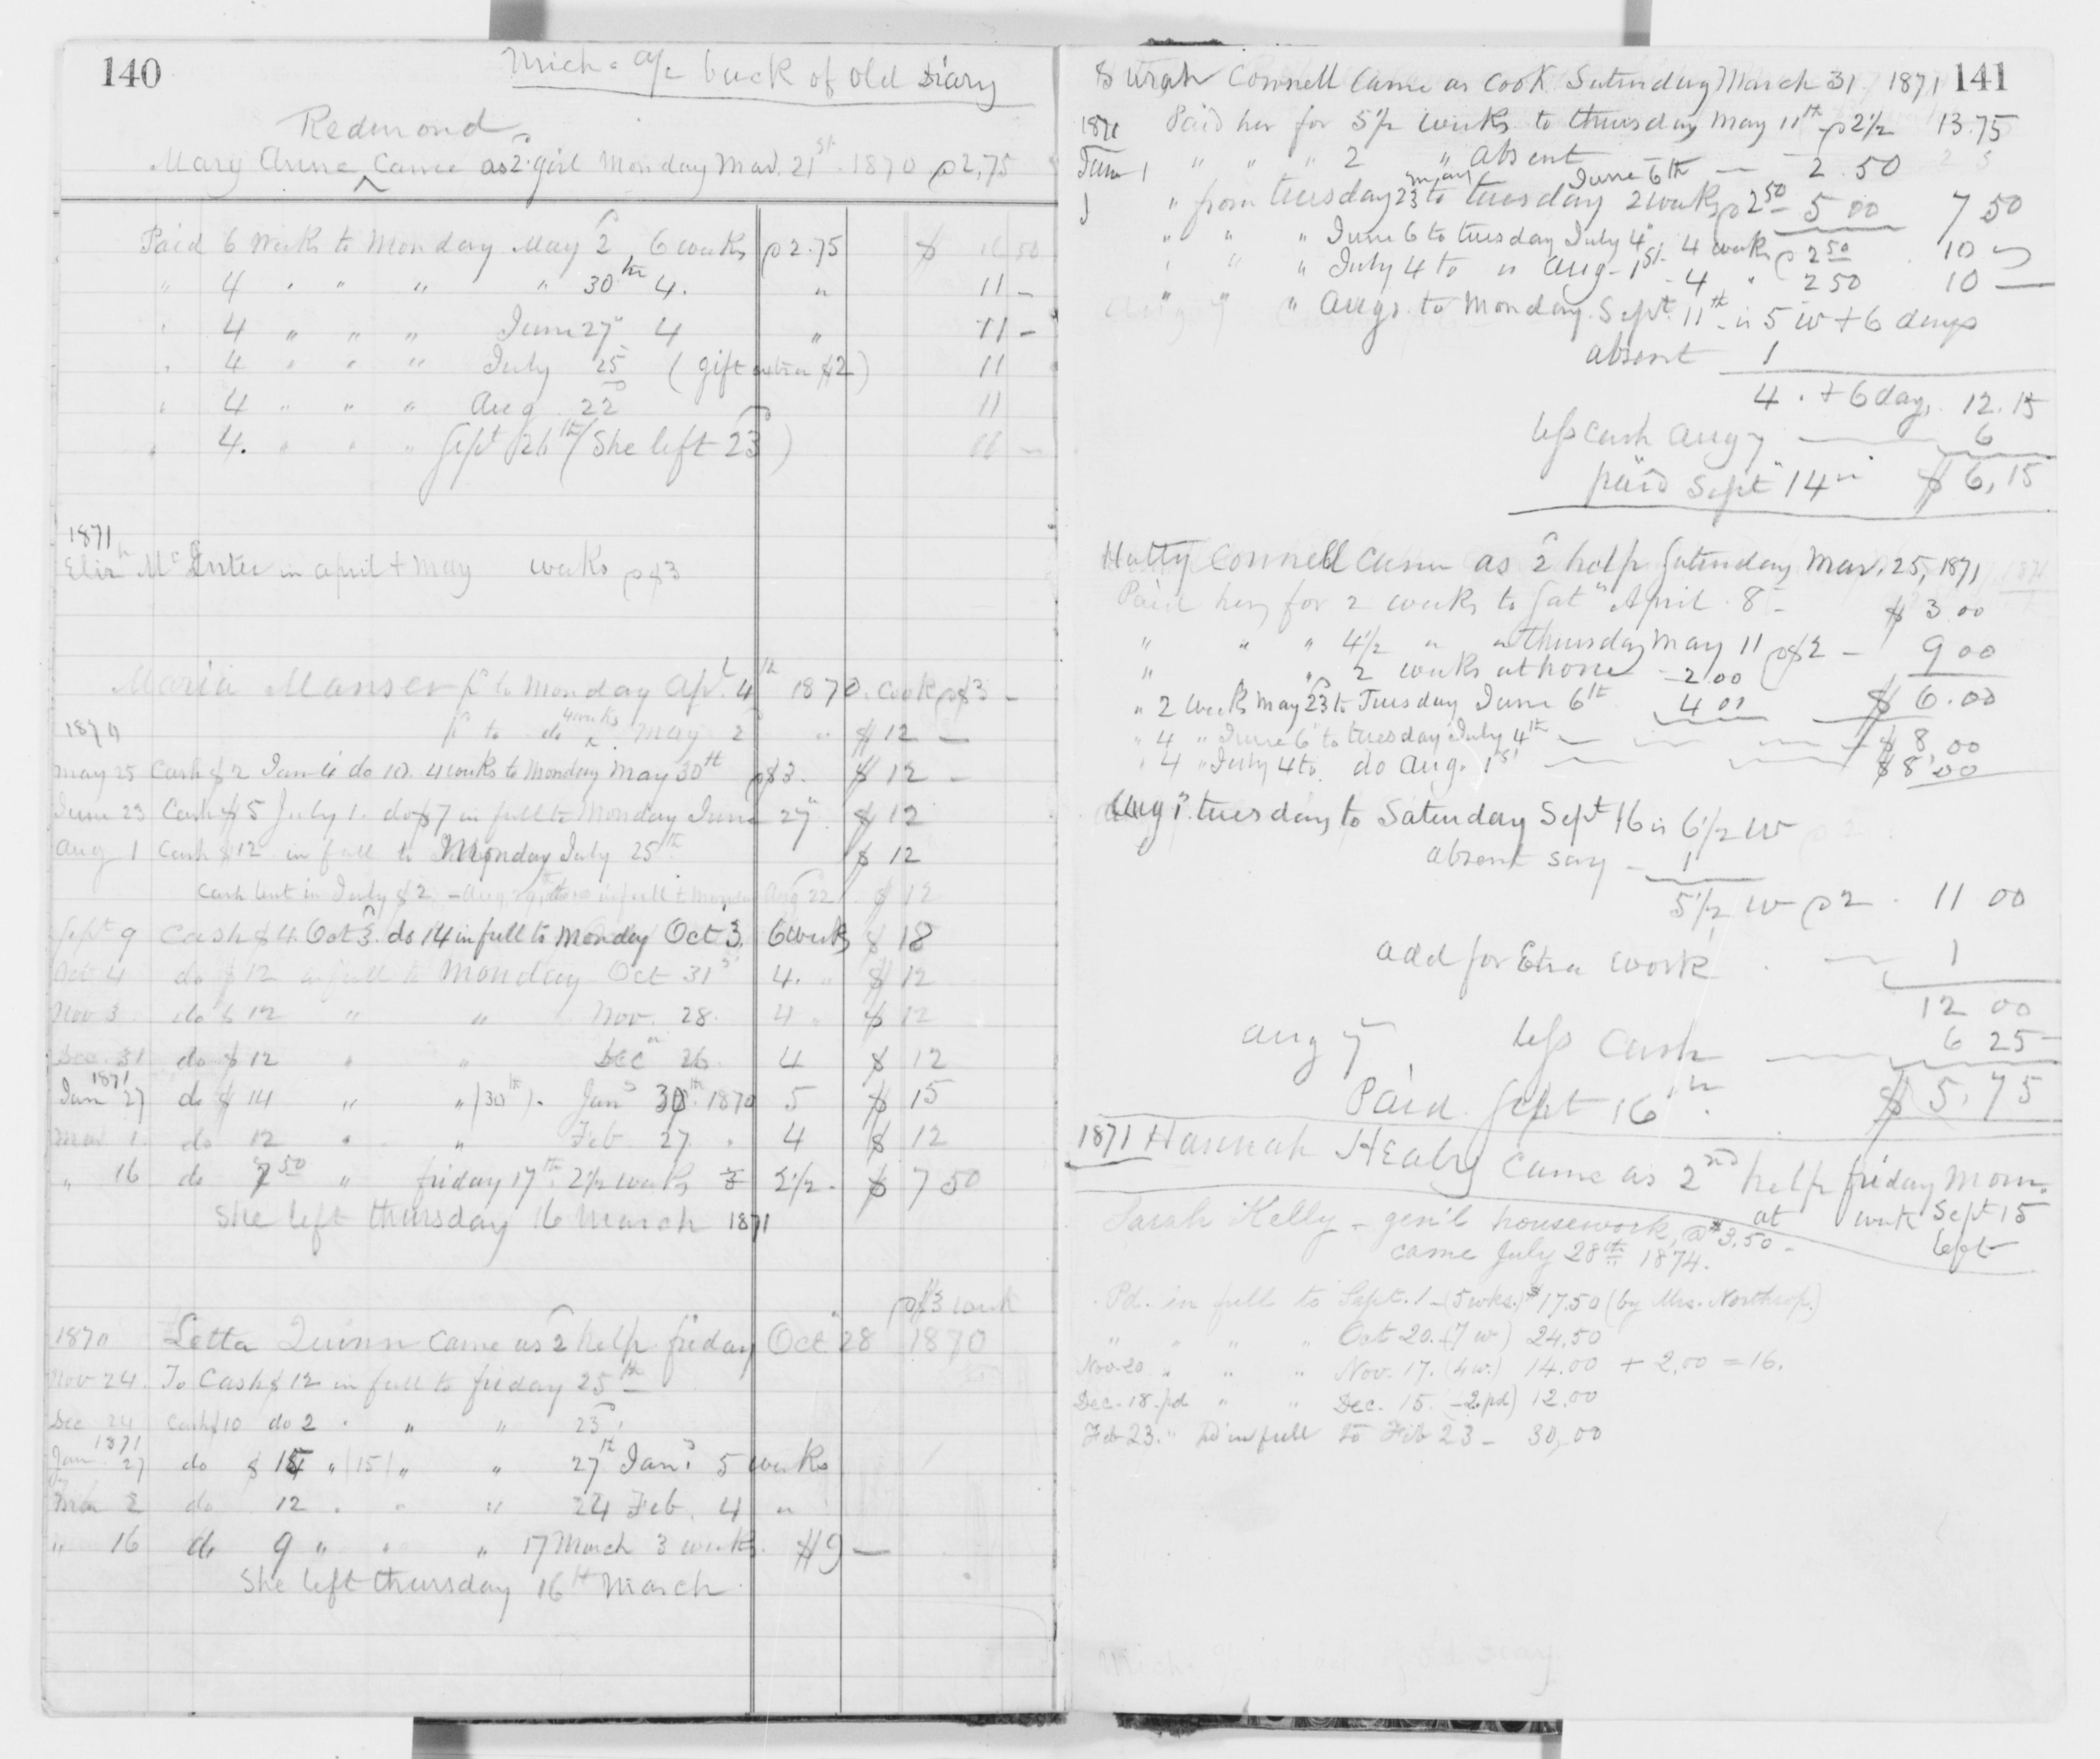 140
Mich. a/c back of old Diary
Redmond
Mary Anne ^ Came as 2d girl Monday Mar. 21st 1870 @ 2,75
Paid 6 Weeks to Monday May 2d 6 weeks @ 2.75 $ 16 50
" 4 " " " " 30th 4. " 11 –
" 4 " " " June 27th 4 " 11 –
" 4 " " " July 25 (gift extra $2) 11
" 4 " " " Aug. 22d 11
" 4. " " " Sept 26th (She left 23d) –
1871
Elizh Mc in april + May weeks @ $3
Maria Manser pd to Monday Apl. 4th 1870. Cook @ $3 –
1870 pd to do 4 weeks ^ May 2d " $ 12 –
May 25 Cash $2 Jan 4 do 10. 4 weeks to Monday May 30th @ $3. $ 12 –
June 23 Cash $5 July 1. do $7 in full to Monday June 27th $ 12
Aug 1 Cash $12 in full to Monday July 25th $ 12
Cash lent in July $2 – Aug 29th in full to Monday Aug 22d $ 12
Sept 9 Cash $4. Oct 3d. do 14 in full to Monday Oct 3. 6 weeks $ 18
Oct 4 do $12 in full to Monday Oct 31st 4. " $ 12
Nov 3 do $ 12 " " Nov. 28. 4 " $ 12
Dec. 31 do $ 12 " " Dec 26 4 $ 12
1871
Jan 27 do $ 14 " " (30th). Jan 30th 1870 5 $ 15
Mar. 1 do 12 " " Feb 27 " 4 $ 12
" 16 do 7 50 " friday 17th 2½ weeks 2½ $ 7 50
She left thursday 16 March 1871
@ $3 week
1870 Letta Quinn Came as 2d help friday Oct 28 1870
Nov 24. To Cash $12 in full to friday 25th
Dec 24 Cash $10 do 2 " " " 23d
1871
Jan 27 do $ 15 " (15) " " 27th Jan. 5 weeks
Mar 2 do 12 " " " 24 Feb. 4 "
" 16 do 9 " " " 17 March 3 weeks. $9 –
She left thursday 16th March
141
Sarah Connell Came as Cook Saturday March 31, 1871
1871 Paid her for 5½ weeks to thursday May 11th @ 2½ 13.75
June 1 " " " 2 " absent — 2.50
" from tuesday May 23 to tuesday June 6th 2 weeks @ 2 50 5 00 7 50
" " " June 6 to tuesday July 4th 4 weeks @ 2 50 10 –
" " " July 4 to " Aug. 1st. 4 " 2 50 10 —
Aug 7 " " Aug 1. to Monday Sept. 11th is 5 W + 6 days
absent 1
4. + 6 days. 12.15
less Cash Aug 7 — 6
paid Sept 14th $ 6,15
Hatty Connell Came as 2d help Saturday Mar. 25, 1871
Paid her for 2 weeks to Saty April 8 – $ 3.00
" " " 4½ " " thursday May 11 @ $2 – 9 00
" " 2 weeks at home – 2.00
" 2 Weeks May 23d to Tuesday June 6th 4 00 $ 6.00
" 4 " June 6 to tuesday July 4th — $ 8,00
" 4 " July 4 to do Aug. 1st — $ 8,00
Aug 1st. tuesday to Saturday Sept 16 is 6½ W
absent say – 1
5½ W @ 2. 11 00
add for Etra Work. — 1
12 00
Aug 7 less Cash — 6 25
Paid Sept 16th. $ 5.75
1871 Hannah Healy Came as 2nd help friday Morn.
at work Sept 15
left
Sarah Kelly – gen'l housework, @ $3.50 –
came July 28th 1874.
Pd. in full to Sept. 1 – (5 wks.) $17.50 (by Mrs. Northrop.)
" " " " Oct 20. (7 w) 24.50
Nov. 20 " " " Nov. 17. (4 w.) 14.00 + 2.00 = 16.
Dec. 18. pd " " Dec. 15. (–2. pd) 12.00
Feb 23. " Pd in full to Feb 23 – 30,00